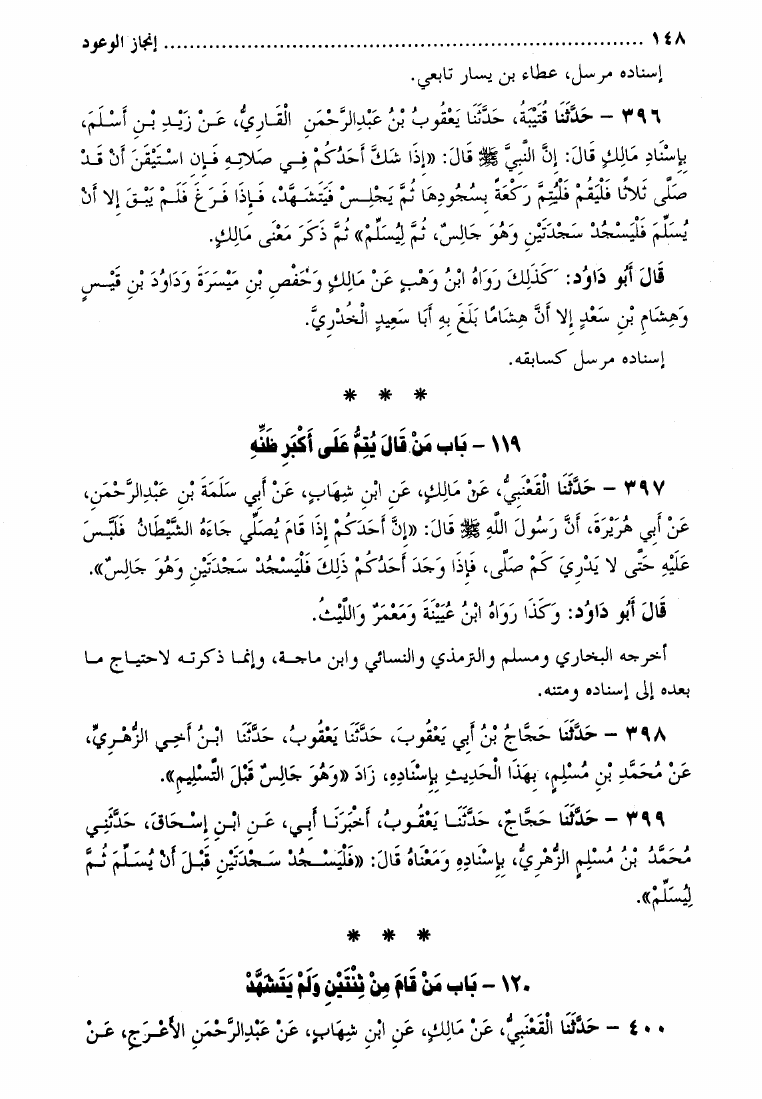 ١٤٨ ........................................................................... إنجاز الوعود
إسناده مرسل، عطاء بن يسار تابعي.
٣٩٦ – حَدَّثَنَا قُتَيْبَةُ، حَدَّثَنَا يَعْقُوبُ بْنُ عَبْدِالرَّحْمَنِ الْقَارِيُّ، عَنْ زَيْدِ بْنِ أَسْلَمَ،
بِإِسْنَادِ مَالِكٍ قَالَ: إِنَّ النَّبِيَّ ﷺ قَالَ: «إِذَا شَكَّ أَحَدُكُمْ فِي صَلاتِهِ فَإِنِ اسْتَيْقَنَ أَنْ قَدْ
صَلَّى ثَلاثًا فَلْيَقُمْ فَلْيُتِمَّ رَكْعَةً بِسُجُودِهَا ثُمَّ يَجْلِسْ فَيَتَشَهَّدْ، فَإِذَا فَرَغَ فَلَمْ يَبْقَ إِلا أَنْ
يُسَلِّمَ فَلْيَسْجُدْ سَجْدَتَيْنِ وَهُوَ جَالِسٌ، ثُمَّ لِيُسَلِّمْ» ثُمَّ ذَكَرَ مَعْنَى مَالِكٍ.
قَالَ أَبُو دَاوُد: كَذَلِكَ رَوَاهُ ابْنُ وَهْبٍ عَنْ مَالِكٍ وَحَفْصِ بْنِ مَيْسَرَةَ وَدَاوُدَ بْنِ قَيْسٍ
وَهِشَامِ بْنِ سَعْدٍ إِلا أَنَّ هِشَامًا بَلَغَ بِهِ أَبَا سَعِيدٍ الْخُدْرِيَّ.
إسناده مرسل كسابقه.
* * *
١١٩ – بَاب مَنْ قَالَ يُتِمُّ عَلَى أَكْبَرِ ظَنِّهِ
٣٩٧ – حَدَّثَنَا الْقَعْنَبِيُّ، عَنْ مَالِكٍ، عَنِ ابْنِ شِهَابٍ، عَنْ أَبِي سَلَمَةَ بْنِ عَبْدِالرَّحْمَنِ،
عَنْ أَبِي هُرَيْرَةَ، أَنَّ رَسُولَ اللَّهِ ﷺ قَالَ: «إِنَّ أَحَدَكُمْ إِذَا قَامَ يُصَلِّي جَاءَهُ الشَّيْطَانُ فَلَبَّسَ
عَلَيْهِ حَتَّى لا يَدْرِيَ كَمْ صَلَّى، فَإِذَا وَجَدَ أَحَدُكُمْ ذَلِكَ فَلْيَسْجُدْ سَجْدَتَيْنِ وَهُوَ جَالِسٌ».
قَالَ أَبُو دَاوُد: وَكَذَا رَوَاهُ ابْنُ عُيَيْنَةَ وَمَعْمَرٌ وَاللَّيْثُ.
أخرجه البخاري ومسلم والترمذي والنسائي وابن ماجة، وإنما ذكرته لاحتياج ما
بعده إلى إسناده ومتنه.
٣٩٨ – حَدَّثَنَا حَجَّاجُ بْنُ أَبِي يَعْقُوبَ، حَدَّثَنَا يَعْقُوبُ، حَدَّثَنَا ابْنُ أَخِي الزُّهْرِيِّ،
عَنْ مُحَمَّدِ بْنِ مُسْلِمٍ، بِهَذَا الْحَدِيثِ بِإِسْنَادِهِ، زَادَ «وَهُوَ جَالِسٌ قَبْلَ التَّسْلِيمِ».
٣٩٩ – حَدَّثَنَا حَجَّاجٌ، حَدَّثَنَا يَعْقُوبُ، أَخْبَرَنَا أَبِي، عَنِ ابْنِ إِسْحَاقَ، حَدَّثَنِي
مُحَمَّدُ بْنُ مُسْلِمٍ الزُّهْرِيُّ، بِإِسْنَادِهِ وَمَعْنَاهُ قَالَ: «فَلْيَسْجُدْ سَجْدَتَيْنِ قَبْلَ أَنْ يُسَلِّمَ ثُمَّ
لِيُسَلِّمْ».
* * *
١٢٠ – بَاب مَنْ قَامَ مِنْ ثِنْتَيْنِ وَلَمْ يَتَشَهَّدْ
٤٠٠ – حَدَّثَنَا الْقَعْنَبِيُّ، عَنْ مَالِكٍ، عَنِ ابْنِ شِهَابٍ، عَنْ عَبْدِالرَّحْمَنِ الأَعْرَجِ، عَنْ